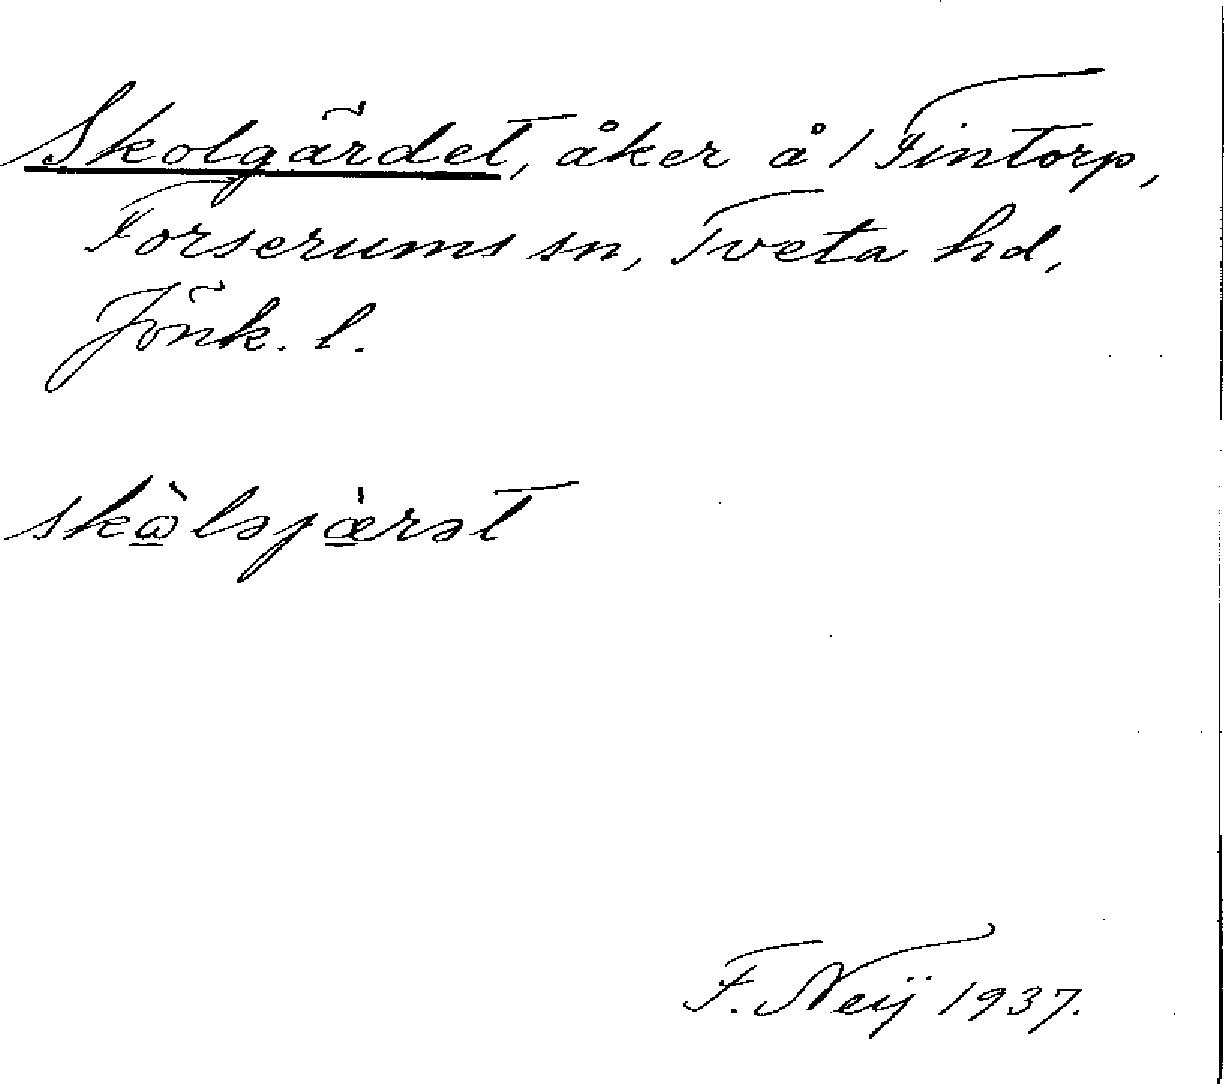 Skolgärdet, åker å 1 Fintorp,
Forserums sn, Tveta hd,
Jönk. l.
skὼ̲ləjæ̲̀rət
F. Neij 1937.